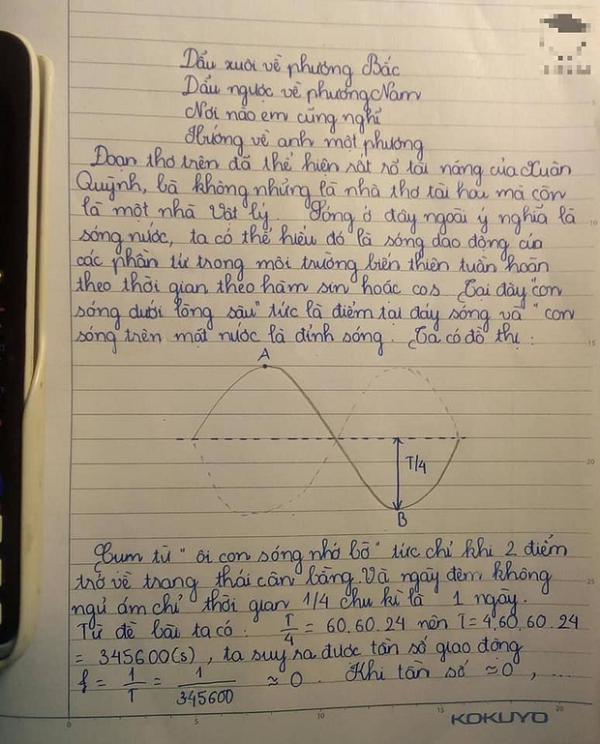 Dẩu xuôi về phương Bắc
Dẩu ngược về phương Nam
Nơi nào em cũng nghĩ
Hướng về anh một phương
Đoạn thơ trên đã thể hiện sắt rõ tài năng của Xuân
Quỳnh, bà không những là nhà thơ tài hoa mà còn
là một nhà Vật lý. Sóng ở đây ngoài ý nghĩa là
sóng nước, ta có thể hiểu đó là sóng dao động của
các phần tử trong môi trường biến thiên tuần hoàn
theo thời gian theo hàm sin hoặc cos. Tại đây "con
sóng dưới lòng sâu" tức là điểm tại đáy sóng và "con
sóng trên mặt nước là đỉnh sóng. Ta có đồ thị:
A
T/4
B
Cụm từ "ôi con sóng nhớ bờ" tức chỉ khi 2 điểm
trở về trạng thái cân bằng. Và ngày đêm không
ngủ ám chỉ thời gian 1/4 chu kì là 1 ngày.
Từ đề bài ta có. T/4 = 60.60.24 nên T = 4.60.60.24
= 345600(s), ta suy ra được tần số giao động
f = 1/T = 1/345600 ≈ 0. Khi tần số ≈ 0, ...
0 5 10 15 20
KOKUYO